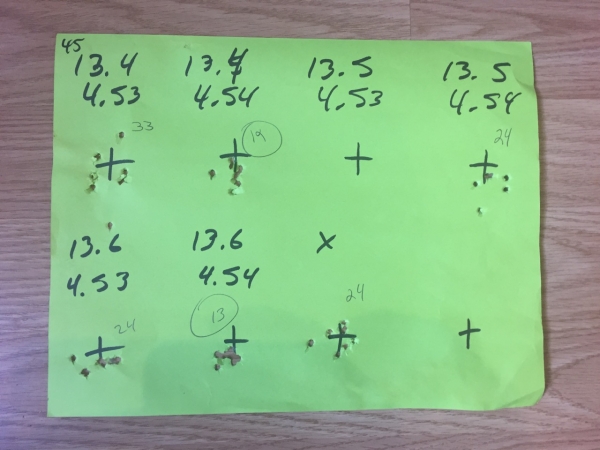 45
13.4 13.4 13.5 13.5
4.53 4.54 4.53 4.54
33 19 24
13.6 13.6 X
4.53 4.54
24 13 24